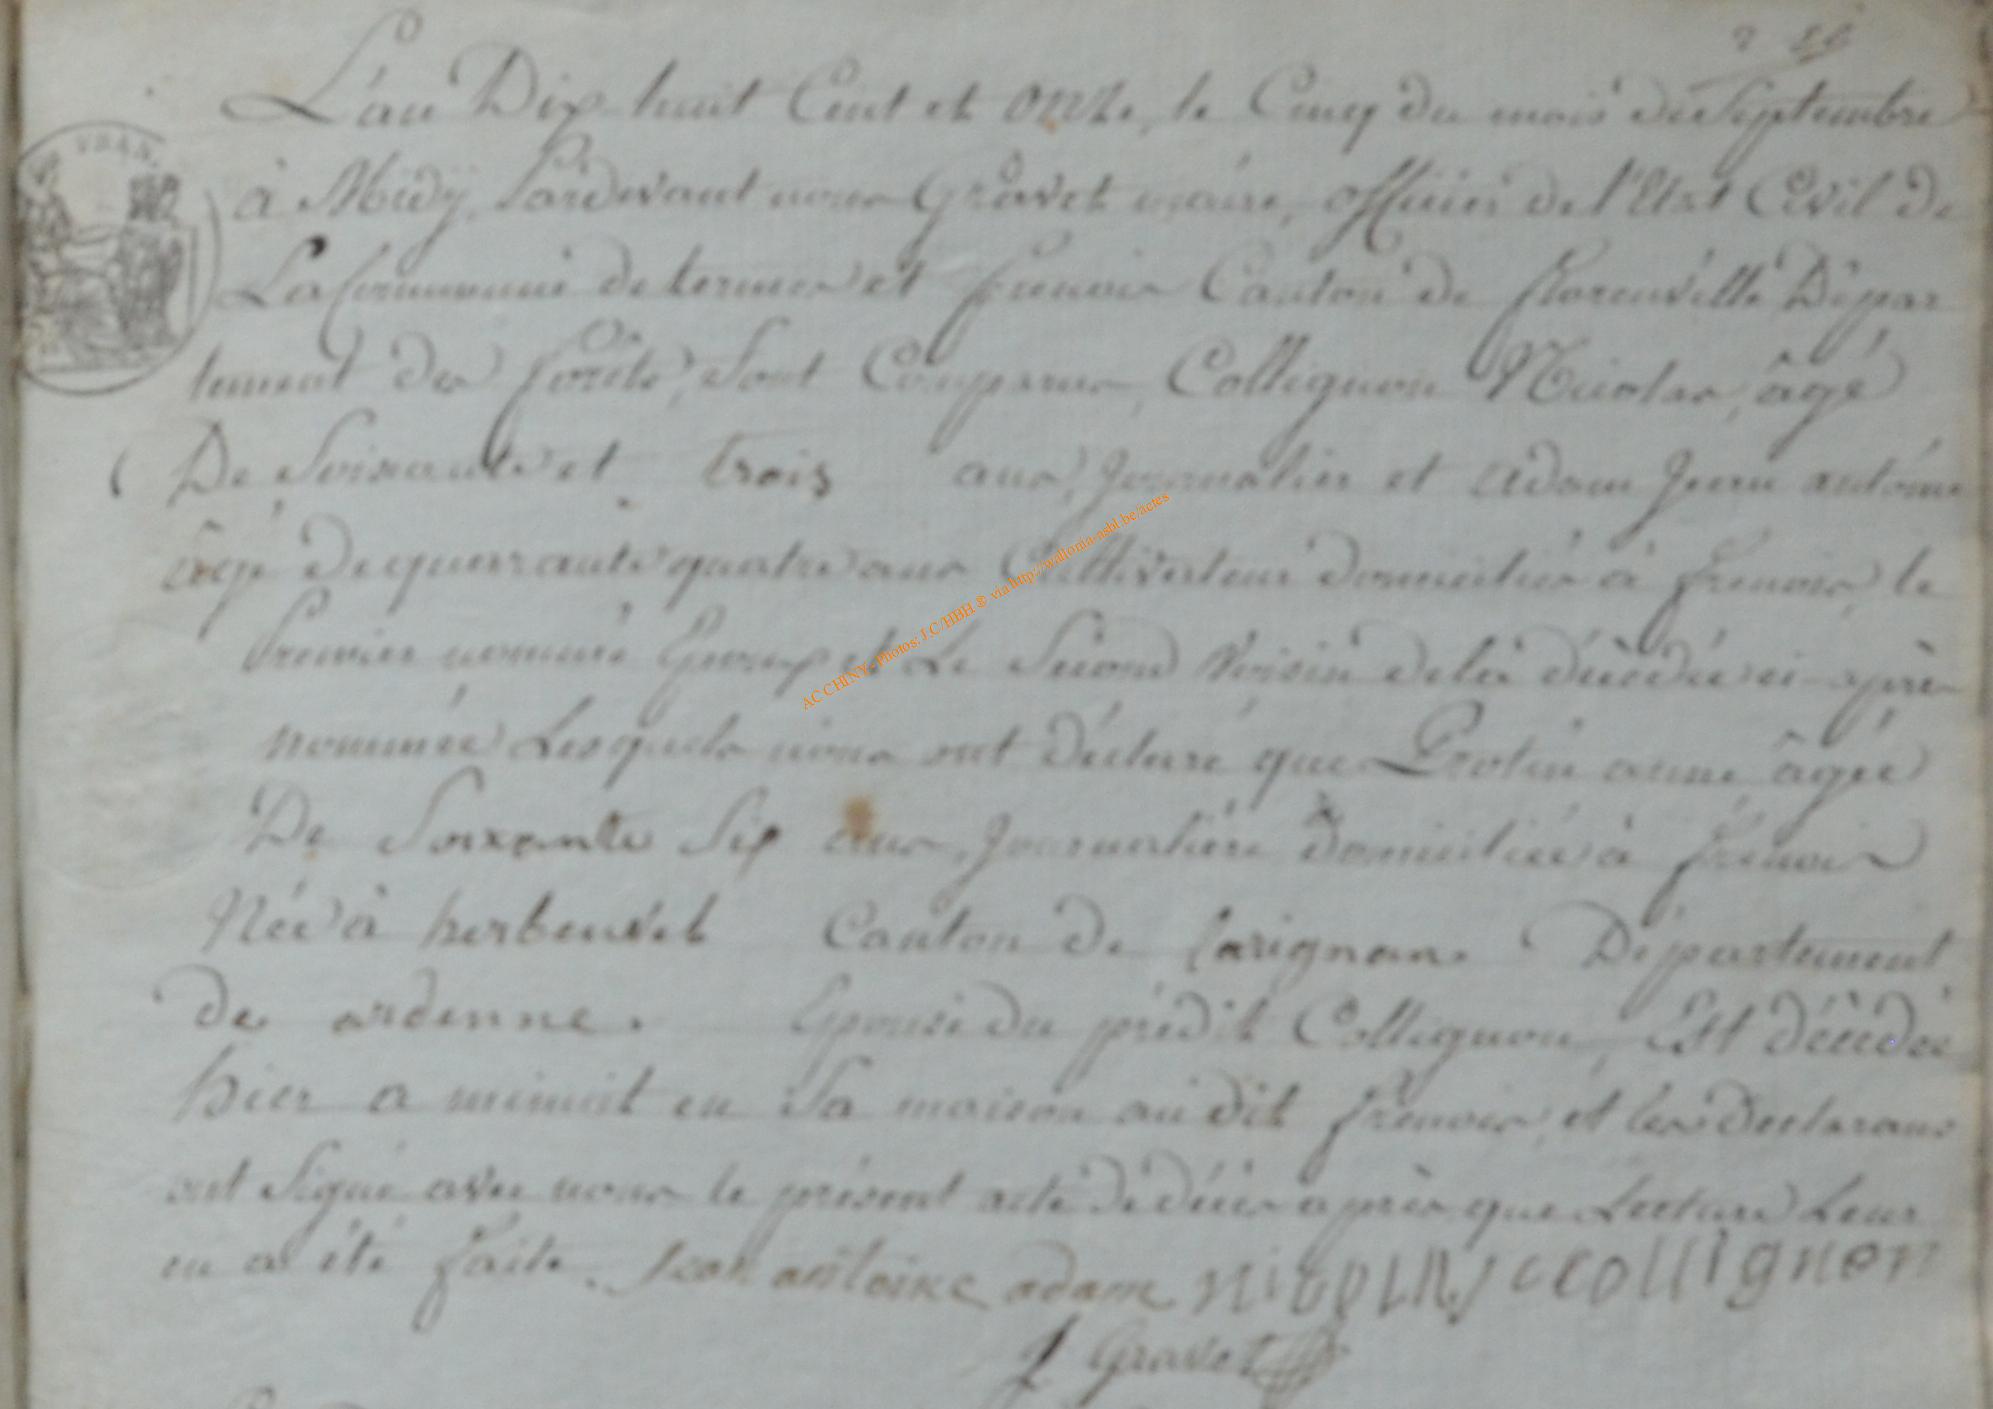 L'an Dix huit Cent et onze, le Cinq du mois de Septembre
à Midÿ Pardevant nous Gravet maire, officier de l'Etat Civil de
La Commune de termes et frenois Canton de florenville Dépar
tement des forêts, Sont Comparus, Collignon Nicolas, âgé
De Soixante et trois ans, Journalier et adam Jean antoine
âgé De quarante quatre ans Cultivateur domiciliés à frenois, le
Premier nommé Epoux et Le Second Voisin de la décédée ci-après
nommée Lesquels nous ont déclaré que Protin anne âgée
De Soixante Six ans, Journalière domiciliée à frenois
Née à herbeuvel Canton de Carignan. Département
des ardenne. Epouse du prédit Collignon, Est décédée
hier a minuit en Sa maison audit frenois, et les Declarans
ont Signé avec nous le présent acte de décès après que Lecture Leur
en a été faite. Jean antoine adam NicoLAs ccollignon
J Gravet
FRAN.
AC CHINY - Photos: J.C/HBH ® via http://wallonia-asbl.be/actes